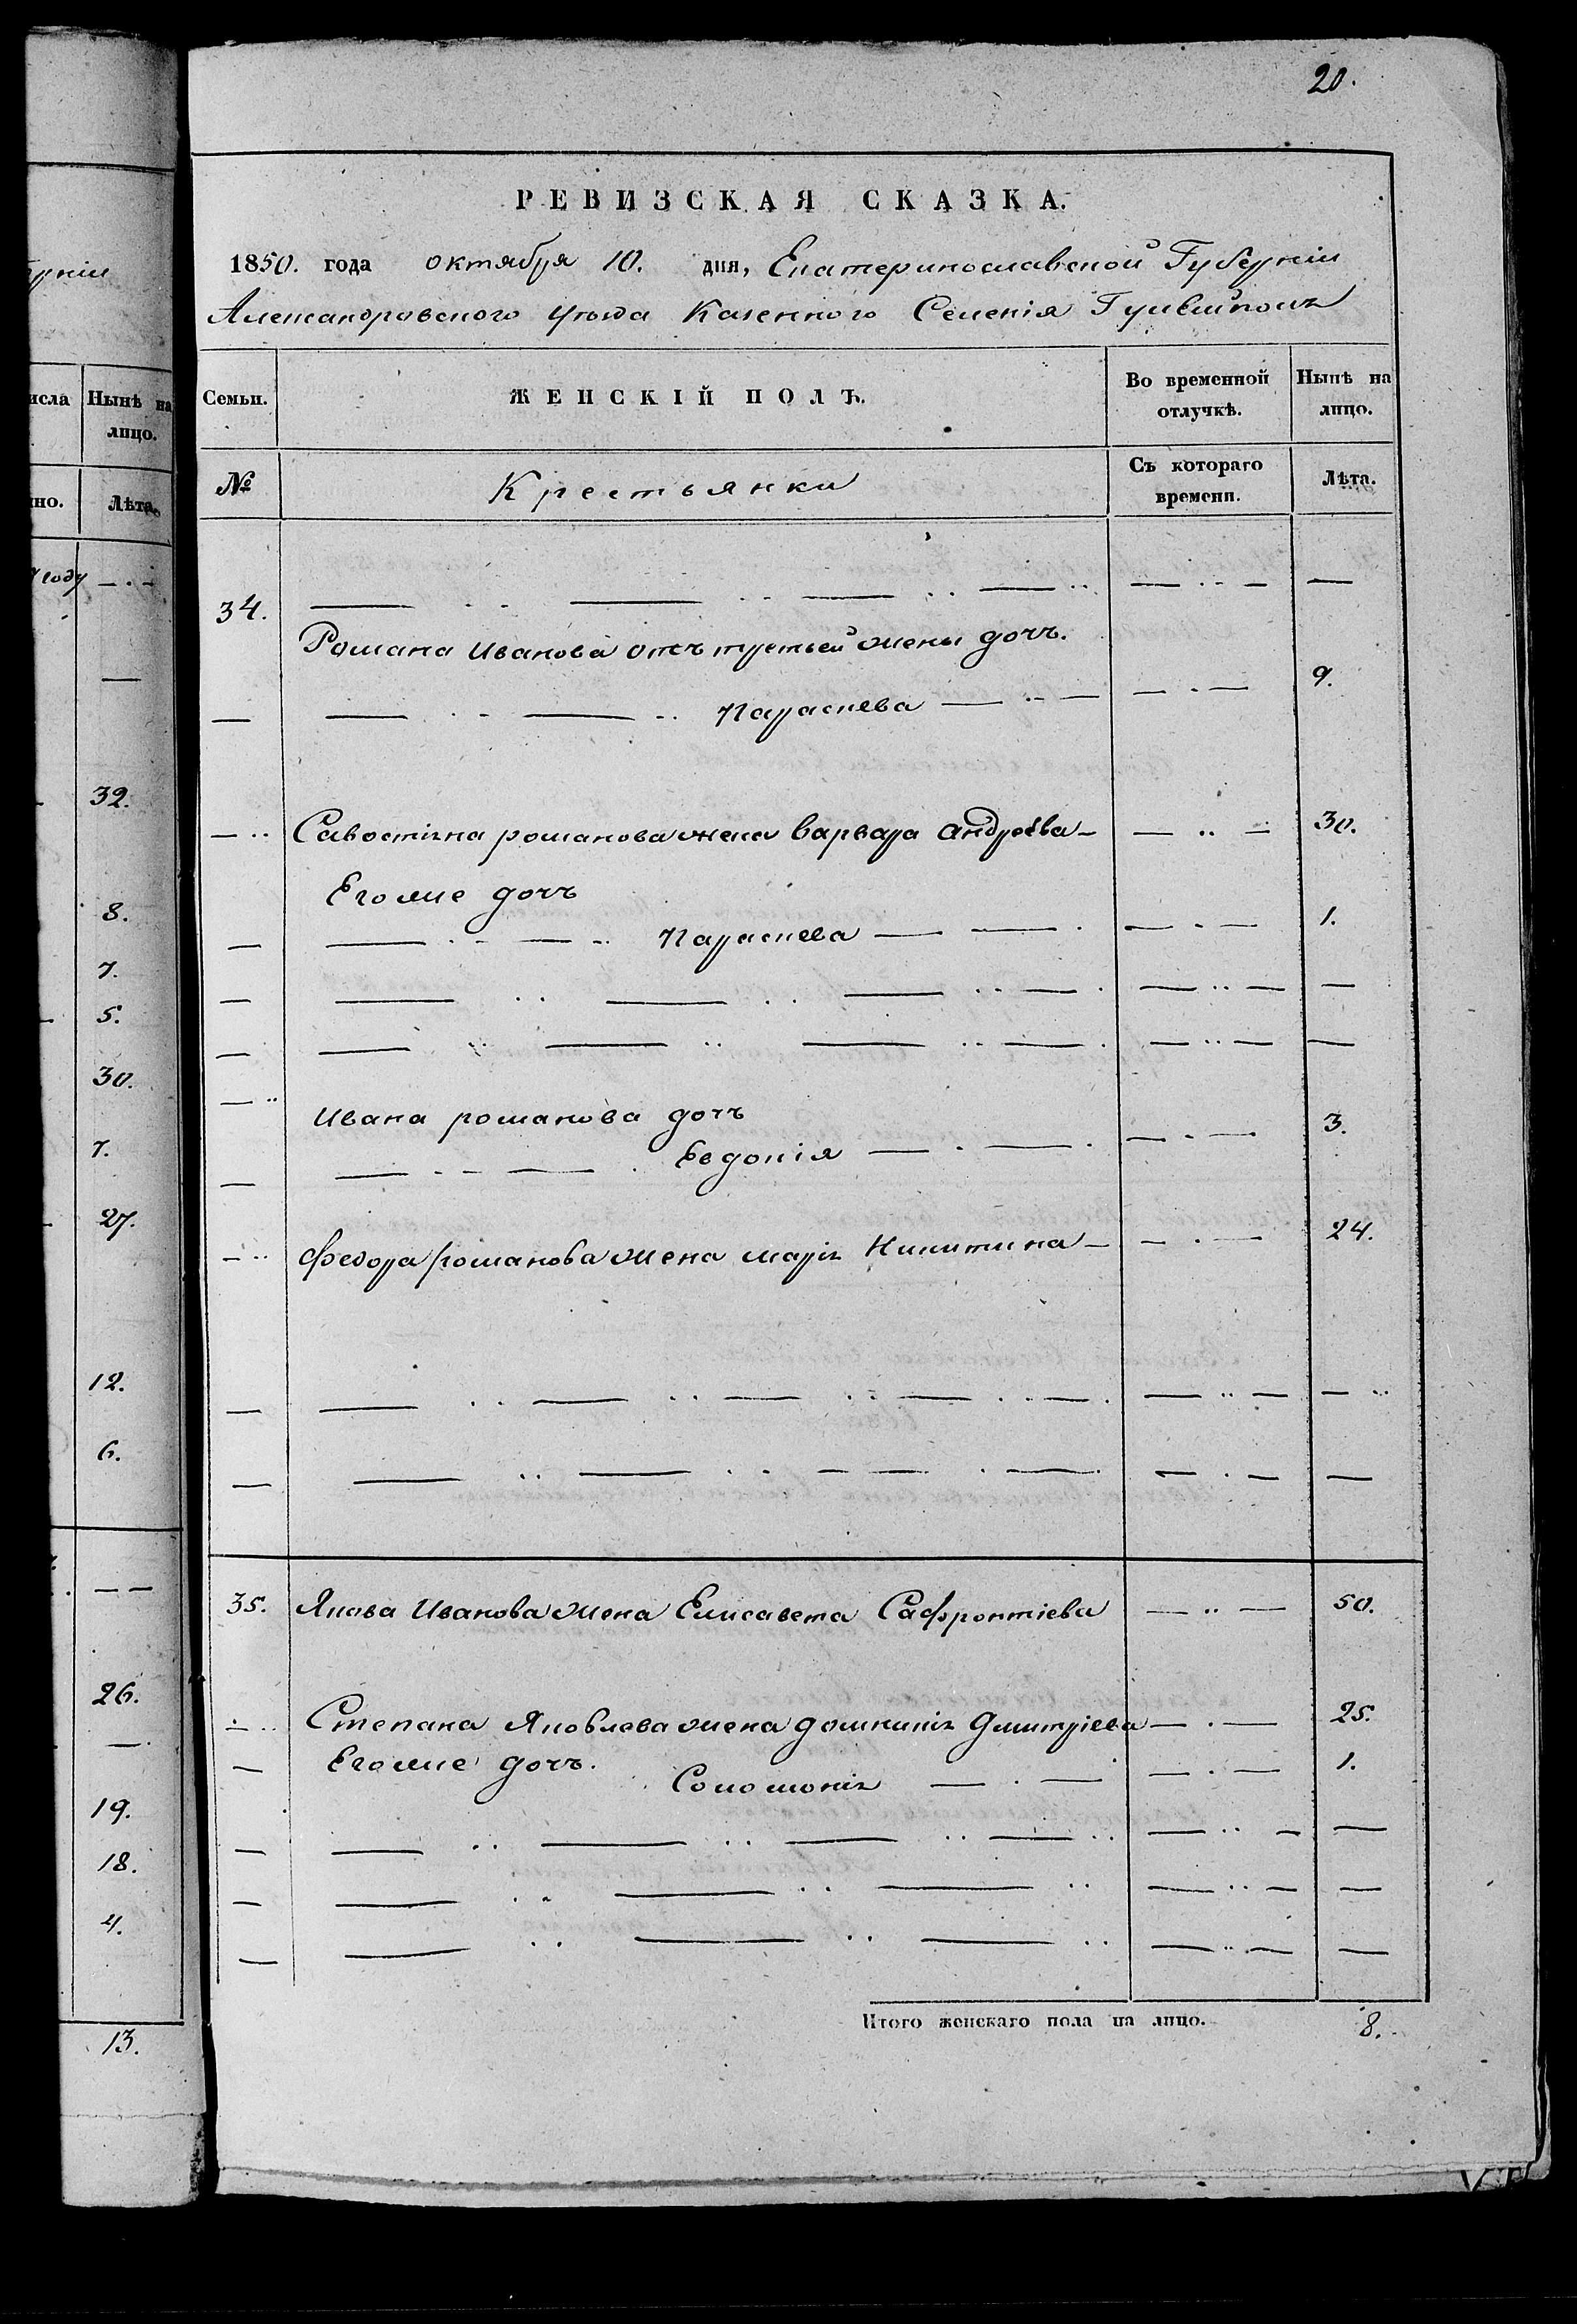 20.
РЕВИЗСКАЯ СКАЗКА.
1850. года октября 10. дня, Екатеринославской Губерніи
Александровского уѣзда Казенного Селенія Гуляйполь
Семьи. ЖЕНСКІЙ ПОЛЪ. Во временной отлучкѣ. Нынѣ на лицо.
№ Крестьянки Съ котораго времени. Лѣта.
34.
Романа Иванова отъ третьей жены дочь.
Параскева 9.
Савостіяна романова жена варвара андреева 30.
Егоже дочь
Параскева 1.
Ивана романова дочь
Евдокія 3.
Федора романова жена марія Никитина 24.
35. Якова Иванова жена Елисавета Сафронтіева 50.
Степана Яковлева жена домникія Дмитріева 25.
Егоже дочь. 1.
Соломонія
Итого женскаго пола на лицо. 8.
исла Нынѣ на лицо.
но. Лѣта.
году
32.
8.
7.
5.
30.
7.
27.
12.
6.
26.
19.
18.
4.
13.